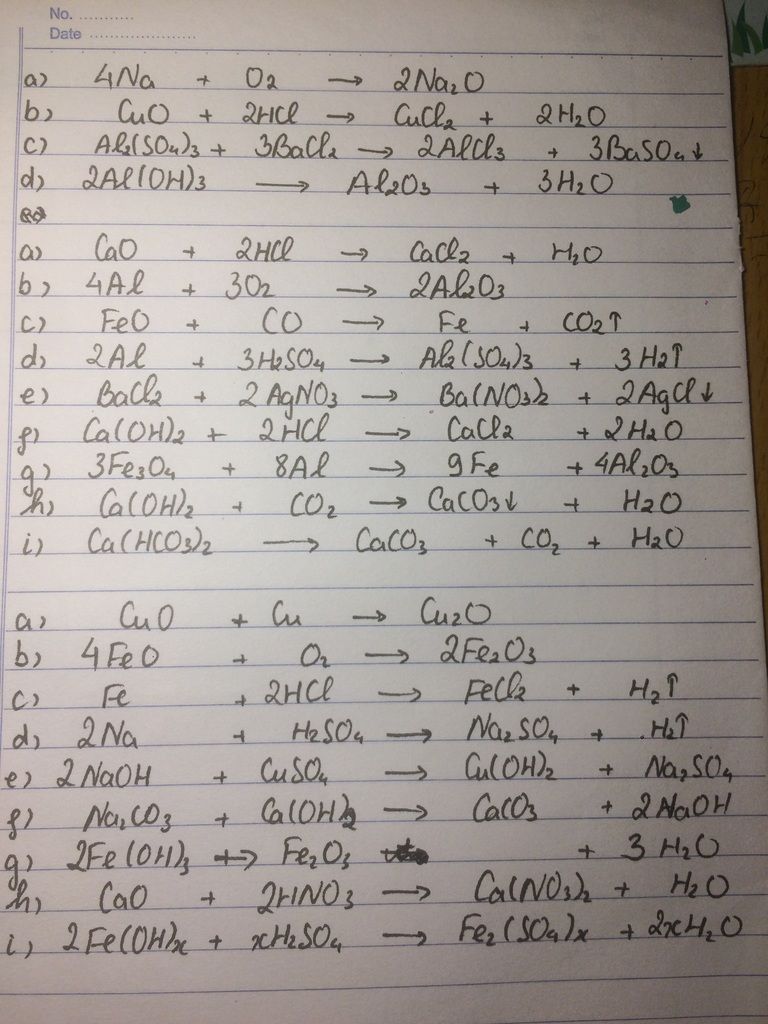 No. ...........
Date .....................
a) 4Na + O₂ → 2Na₂O
b) CuO + 2HCl → CuCl₂ + 2H₂O
c) Al₂(SO₄)₃ + 3BaCl₂ → 2AlCl₃ + 3BaSO₄↓
d) 2Al(OH)₃ → Al₂O₃ + 3H₂O
a) CaO + 2HCl → CaCl₂ + H₂O
b) 4Al + 3O₂ → 2Al₂O₃
c) FeO + CO → Fe + CO₂↑
d) 2Al + 3H₂SO₄ → Al₂(SO₄)₃ + 3H₂↑
e) BaCl₂ + 2AgNO₃ → Ba(NO₃)₂ + 2AgCl↓
f) Ca(OH)₂ + 2HCl → CaCl₂ + 2H₂O
g) 3Fe₃O₄ + 8Al → 9Fe + 4Al₂O₃
h) Ca(OH)₂ + CO₂ → CaCO₃↓ + H₂O
i) Ca(HCO₃)₂ → CaCO₃ + CO₂ + H₂O
a) CuO + Cu → Cu₂O
b) 4FeO + O₂ → 2Fe₂O₃
c) Fe + 2HCl → FeCl₂ + H₂↑
d) 2Na + H₂SO₄ → Na₂SO₄ + H₂↑
e) 2NaOH + CuSO₄ → Cu(OH)₂ + Na₂SO₄
f) Na₂CO₃ + Ca(OH)₂ → CaCO₃ + 2NaOH
g) 2Fe(OH)₃ → Fe₂O₃ + 3H₂O
h) CaO + 2HNO₃ → Ca(NO₃)₂ + H₂O
i) 2Fe(OH)ₓ + xH₂SO₄ → Fe₂(SO₄)ₓ + 2xH₂O